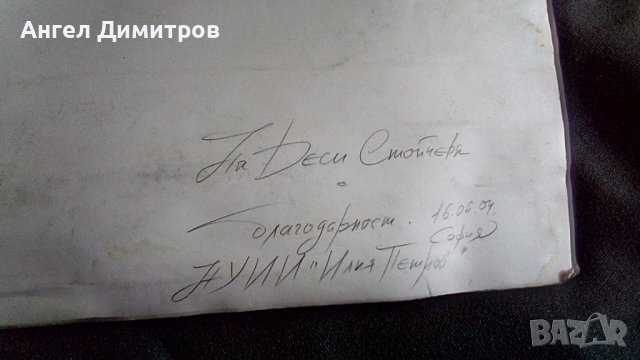 Ангел Димитров
На Деси Стойчева
с
благодарност. 16.06.04.
София
НУИИ "Илия Петров"
BAZAR